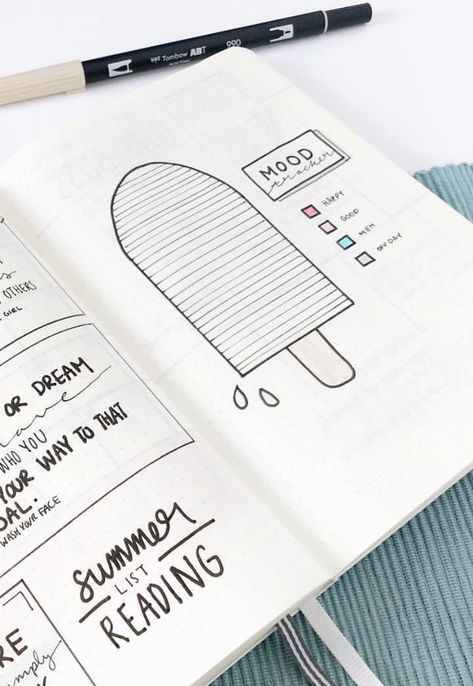 Tombow ABT
990
MOOD
tracker
HAPPY
GOOD
MEH
OFF DAY
OTHERS
GIRL
OR DREAM
have
WHO YOU
YOUR WAY TO THAT
WASH YOUR FACE
summer
LIST
READING
RE
simply